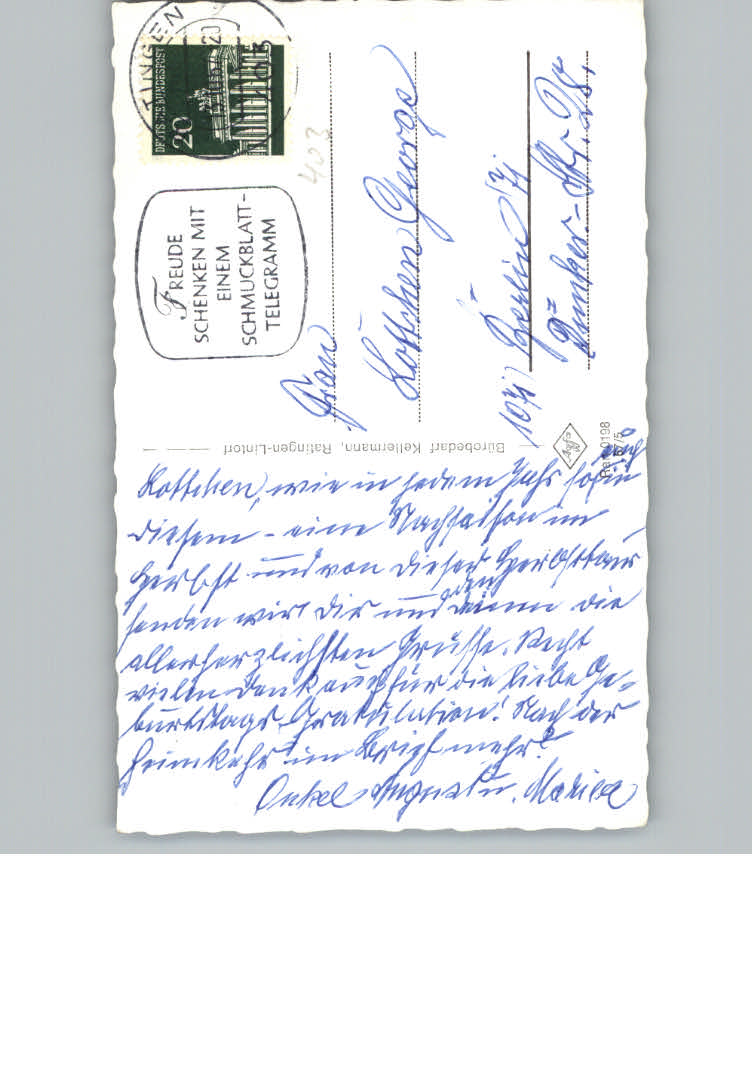 TINGEN
20
DEUTSCHE BUNDESPOST
20
403
FREUDE
SCHENKEN MIT
EINEM
SCHMUCKBLATT-
TELEGRAMM
Frau
Lottchen George
Berlin
Duncker-Str.
Bürobedarf Kellermann, Ratingen-Lintorf
Agfa
0198
Lottchen, wie in jedem Jahr so auch in
diesem - eine Nachsaison im
Herbst und von dieser Herbsttour
senden wir Dir und den Deinen die
allerherzlichsten Grüsse. Recht
vielen Dank auch für die liebe Ge-
burtstags-Gratulation! Nach der
Heimkehr im Brief mehr!
Onkel August u. Marie